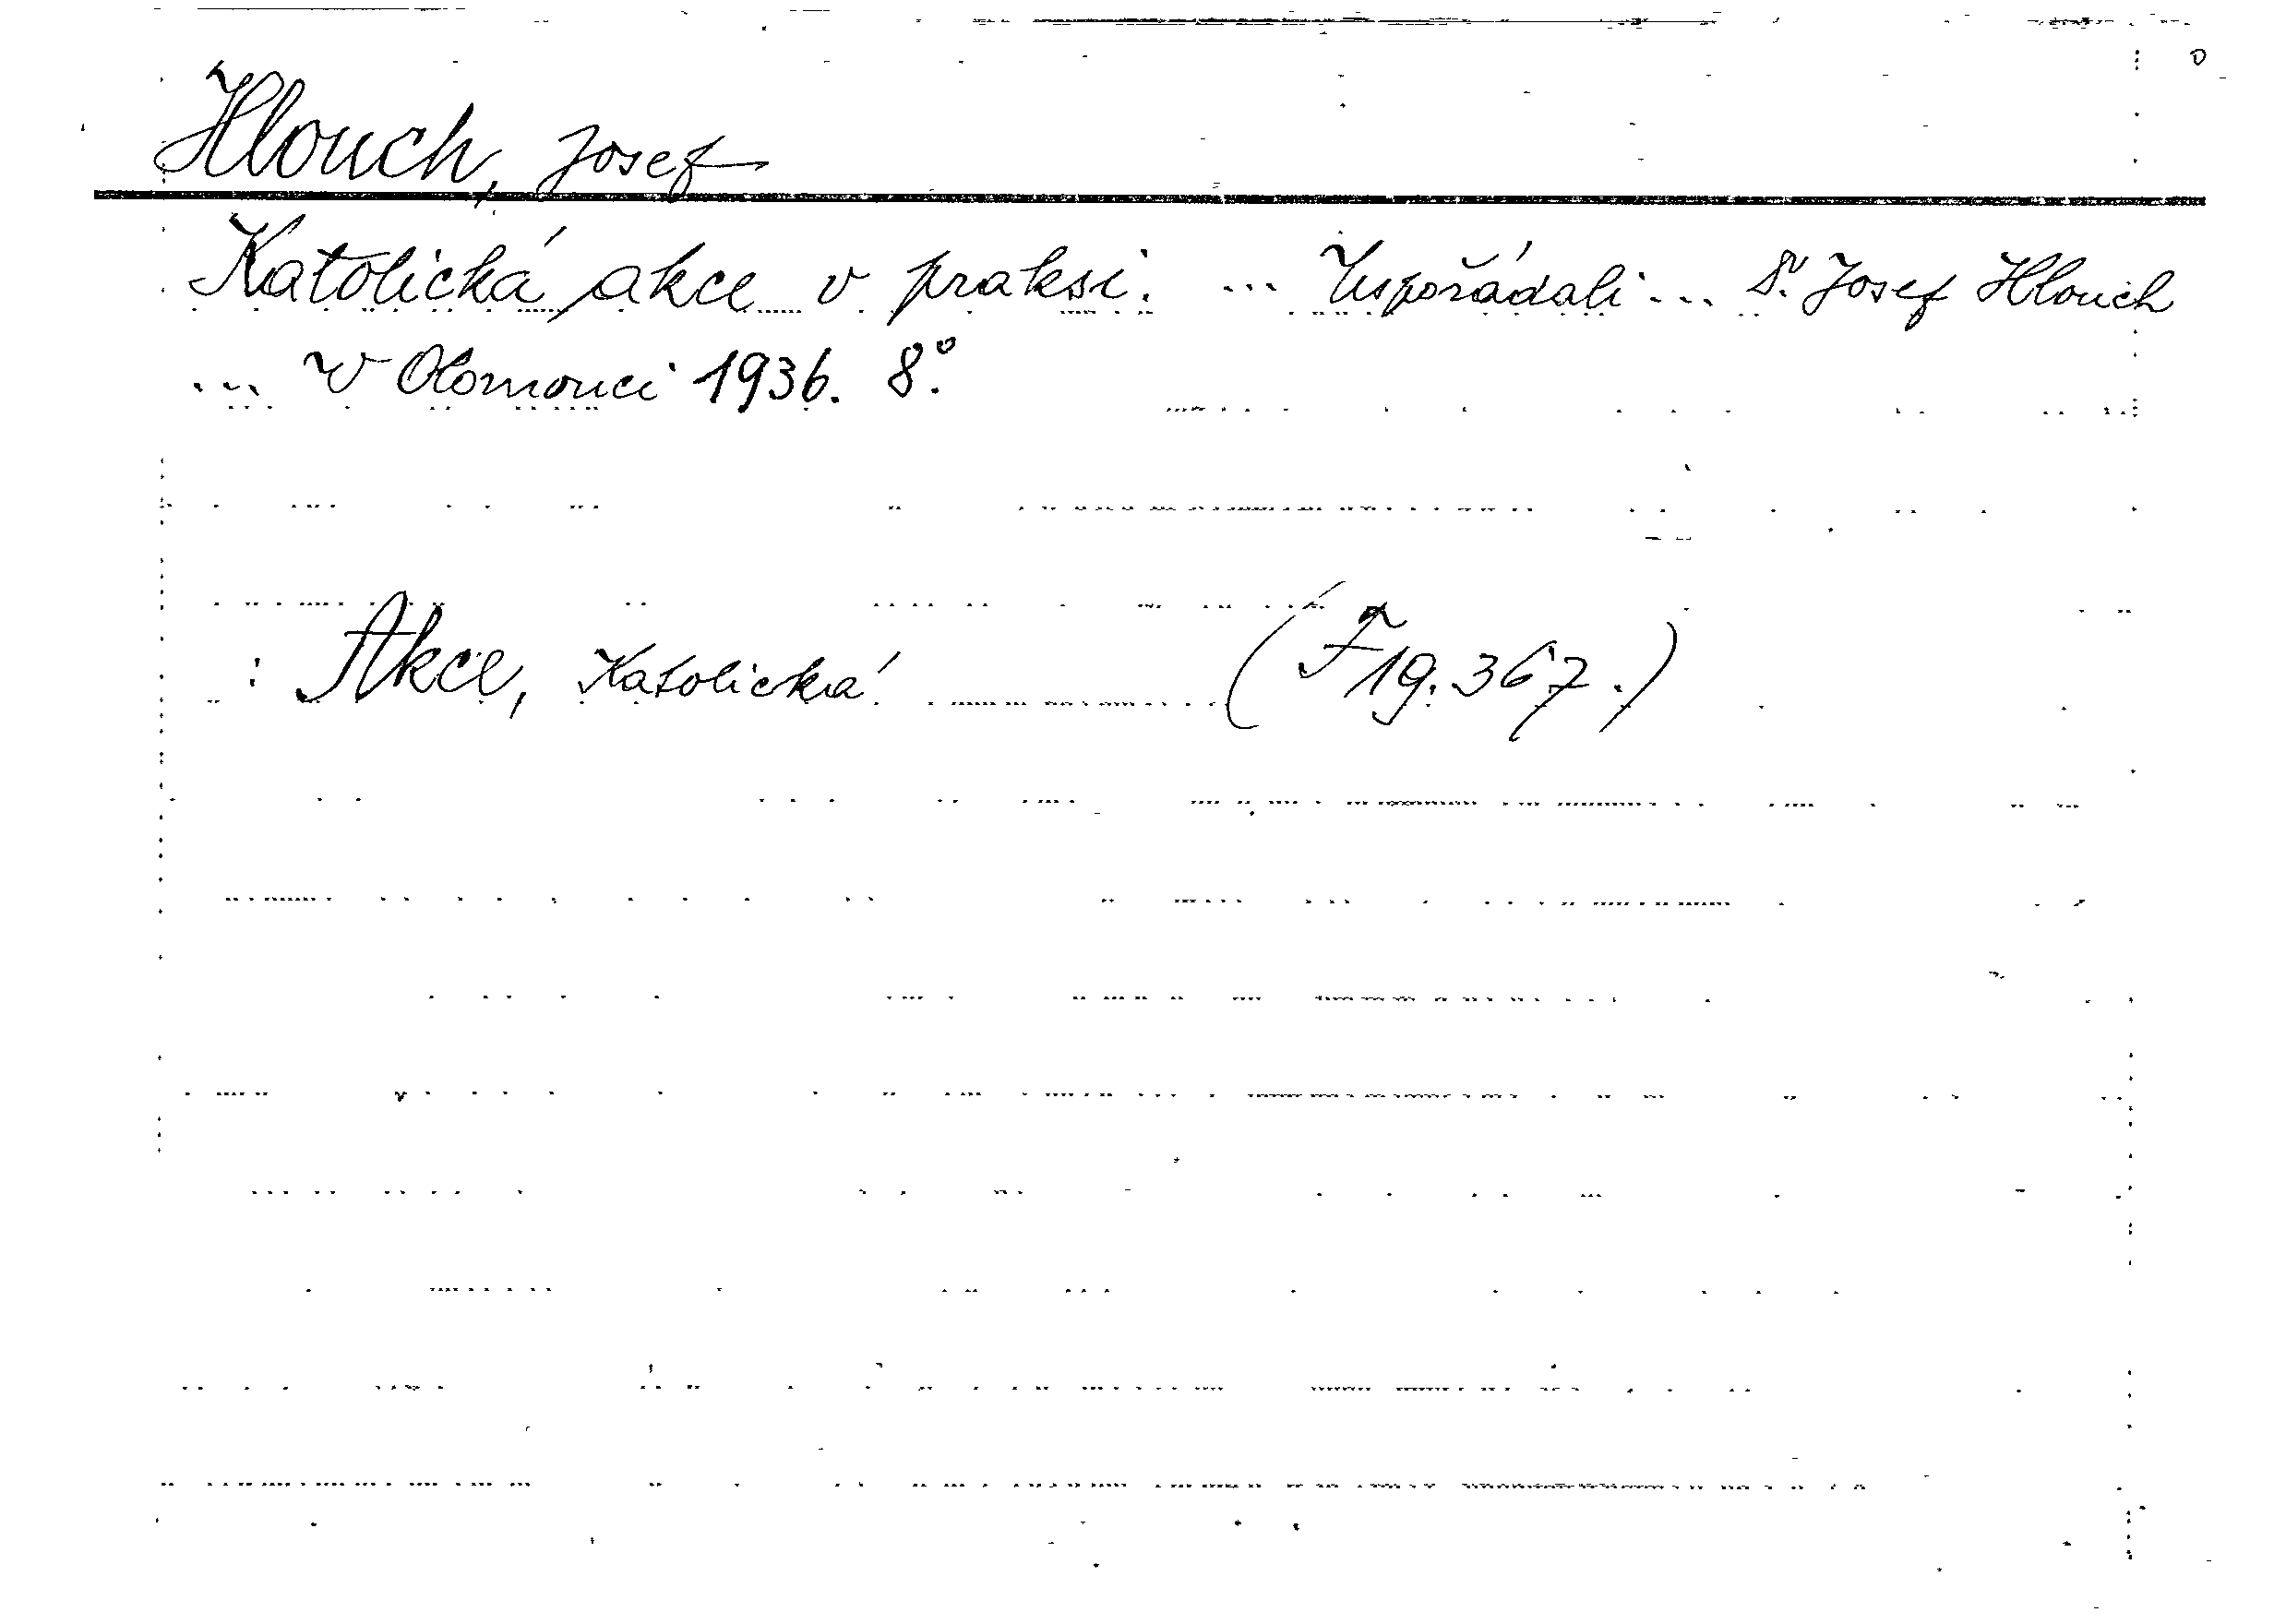 Hlouch, Josef
Katolická akce v praksi. ... Uspořádali ... Josef Hlouch
... V Olomouci 1936. 8°.
: Akce, Katolická (F 19.367.)